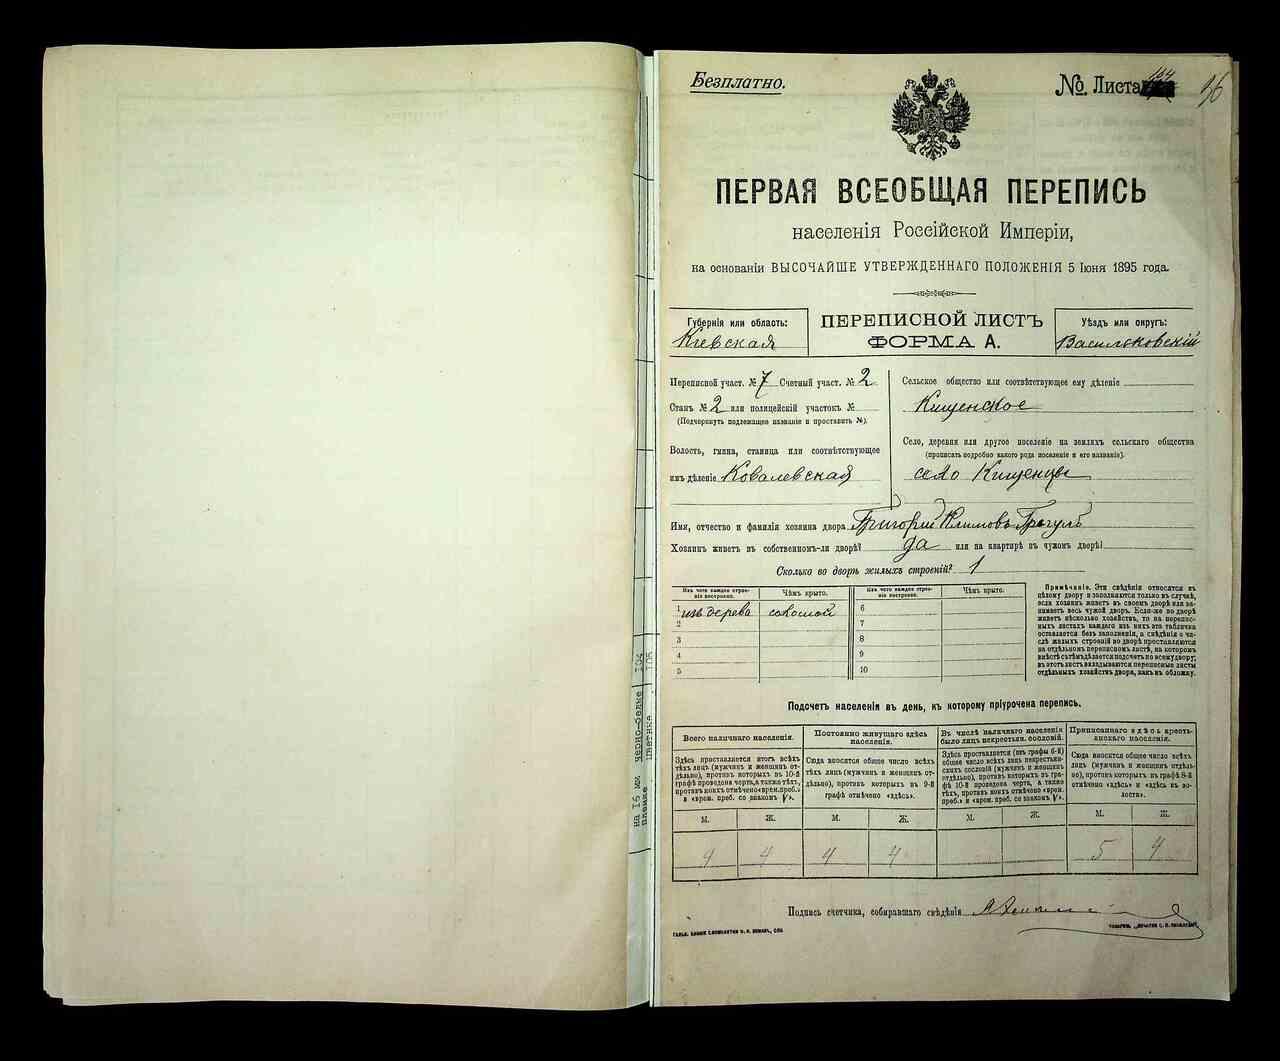 Безплатно.
№. Листа
ПЕРВАЯ ВСЕОБЩАЯ ПЕРЕПИСЬ
населенія Россійской Имперіи,
на основаніи ВЫСОЧАЙШЕ УТВЕРЖДЕННАГО ПОЛОЖЕНІЯ 5 Іюня 1895 года.
Губернія или область:
Кіевская
ПЕРЕПИСНОЙ ЛИСТЪ
ФОРМА А.
Уѣздъ или округъ:
Васильковскій
Переписной участ. № 7 Счетный участ. № 2
Станъ № 2 или полицейскій участокъ №
(Подчеркнуть подлежащее названіе и проставить №).
Волость, гмина, станица или соотвѣтствующее
имъ дѣленіе Ковалевская
Сельское общество или соотвѣтствующее ему дѣленіе
Кищенское
Село, деревня или другое поселеніе на земляхъ сельскаго общества
(прописать подробно какого рода поселеніе и его названіе).
село Кищенцы
Имя, отчество и фамилія хозяина двора Григорій Климовъ
Хозяинъ живетъ въ собственномъ-ли дворѣ? да или на квартирѣ въ чужомъ дворѣ?
Сколько во дворѣ жилыхъ строеній? 1
Изъ чего каждое строеніе построено.
Чѣмъ крыто.
Изъ чего каждое строеніе построено.
Чѣмъ крыто.
1 изъ дерева соломой 6
2 7
3 8
4 9
5 10
Примѣчаніе. Эти свѣдѣнія относятся къ
цѣлому двору и заполняются только въ случаѣ,
если хозяинъ живетъ въ своемъ дворѣ или занимаетъ
весь чужой дворъ. Если-же во дворѣ
живетъ нѣсколько хозяйствъ, то на переписныхъ
листахъ каждаго изъ нихъ эта табличка
оставляется безъ заполненія, а свѣдѣнія о числѣ
жилыхъ строеній во дворѣ проставляются
на отдѣльномъ переписномъ листѣ, на которомъ
вмѣстѣ съ тѣмъ дѣлается подсчетъ по всему двору;
въ этотъ листъ вкладываются переписные листы
отдѣльныхъ хозяйствъ двора, какъ въ обложку.
Подсчетъ населенія въ день, къ которому пріурочена перепись.
Всего наличнаго населенія.
Постоянно живущаго здѣсь населенія.
Въ числѣ наличнаго населенія было лицъ некрестьян. сословій.
Приписаннаго здѣсь крестьянскаго населенія.
Здѣсь проставляется итогъ всѣхъ
тѣхъ лицъ (мужчинъ и женщинъ отдѣльно),
противъ которыхъ въ 10-й
графѣ проведена черта, а также тѣхъ,
противъ коихъ отмѣчено «врем. преб.»
и «врем. преб. со знакомъ V».
Сюда вносятъ общее число всѣхъ
тѣхъ лицъ (мужчинъ и женщинъ отдѣльно),
противъ которыхъ въ 9-й
графѣ отмѣчено «здѣсь».
Здѣсь проставляется (изъ графы 6-й)
общее число всѣхъ лицъ некрестьянскихъ
сословій (мужчинъ и женщинъ
отдѣльно), противъ которыхъ въ графѣ
10-й проведена черта, а также
тѣхъ, противъ коихъ отмѣчено «врем.
преб.» и «врем. преб. со знакомъ V».
Сюда вносятъ общее число всѣхъ
лицъ (мужчинъ и женщинъ отдѣльно),
противъ которыхъ въ графѣ 8-й
отмѣчено «здѣсь» и «здѣсь въ волости».
М. Ж. М. Ж. М. Ж. М. Ж.
4 4 4 4 5 4
Подпись счетчика, собиравшаго свѣдѣнія
на 16 мм черно-белые 104
пленке цветная 105